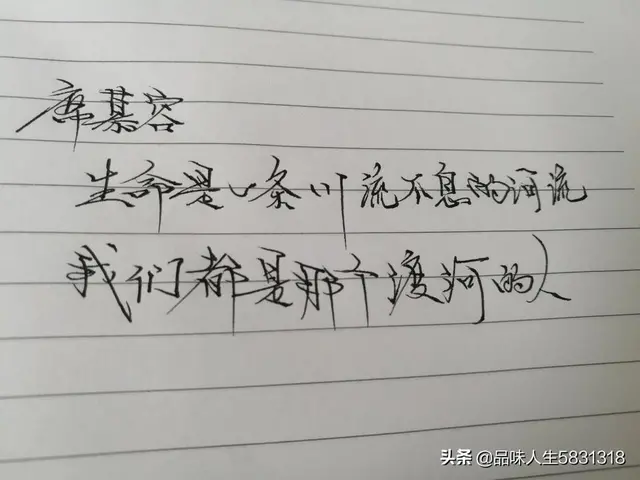 席慕容
生命是一条川流不息的河流
我们都是那个渡河的人
头条 @品味人生5831318